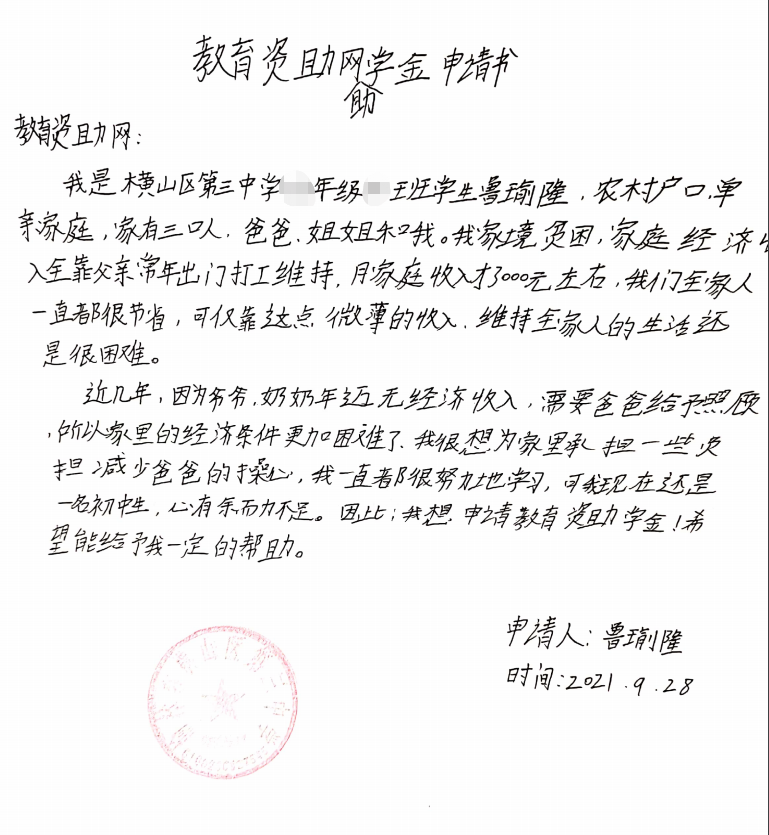 教育资助网学金申请书
助
教育资助网:
我是横山区第三中学 年级 班学生鲁瑜隆,农村户口,单
亲家庭,家有三口人,爸爸、姐姐和我。我家境贫困,家庭经济收
入全靠父亲常年出门打工维持,月家庭收入才3000元左右,我们全家人
一直都很节省,可仅靠这点微薄的收入,维持全家人的生活还
是很困难。
近几年,因为爷爷,奶奶年迈无经济收入,需要爸爸给予照顾
,所以家里的经济条件更加困难了,我很想为家里承担一些负
担,减少爸爸的操心,我一直都很努力地学习,可我现在还是
一名初中生,心有余而力不足。因此;我想申请教育资助学金!希
望能给予我一定的帮助。
申请人:鲁瑜隆
时间:2021.9.28